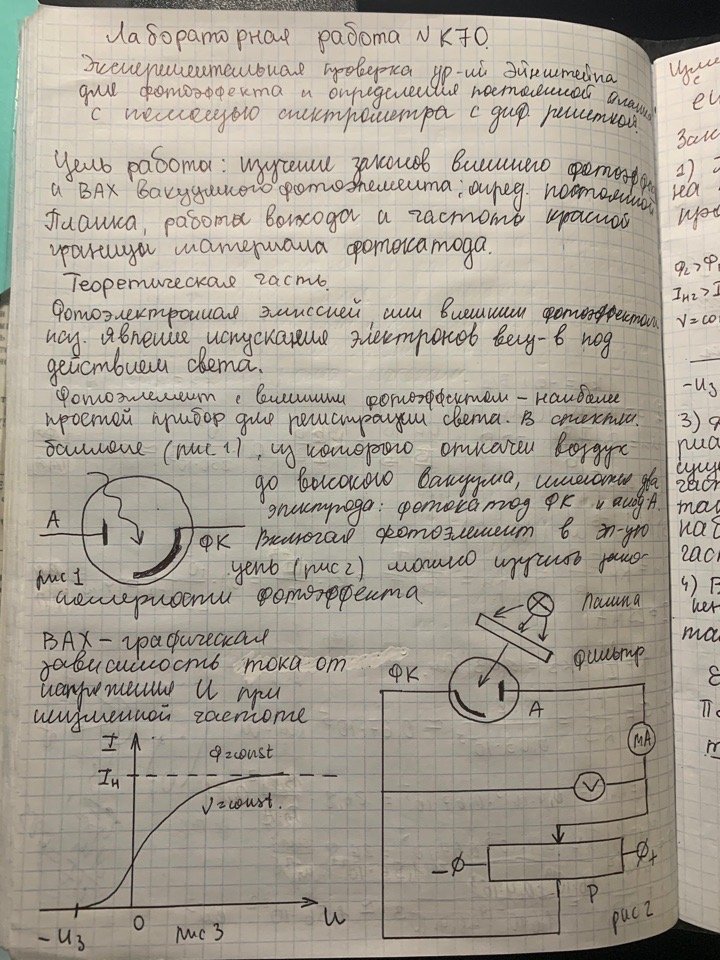 Лабораторная работа N К70.
Эксперементальная проверка ур-ий Эйнштейна
для фотоэффекта и определения постоянной Планка
с помощью спектрометра с диф. решеткой.
Цель работа: изучение законов внешнего фотоэфф
и ВАХ вакуумного фотоэлемента; опред. постоянной
Планка, работы выхода и частота красной
границы материала фотокатода.
Теоретическая часть.
Фотоэлектронная эмиссией или внешним фотоэффектом
наз. явление испускания электронов вещ-в под
действием света.
Фотоэлемент с внешним фотоэффектом – наиболее
простой прибор для регистрации света. В стеклян.
баллоне (рис 1), из которого откачен воздух
до высокого вакуума, имеются два
электрода: фотокатод ФК и анод А.
А
ФК
рис 1
Включая фотоэлемент в эл-ую
цепь (рис 2) можно изучить зако-
номерности фотоэффекта
ВАХ – графическая
зависимость тока от
напряжения U при
неизменной частоте
Лампа
Фильтр
ФК
А
mA
V
– +
Р
рис 2
I
Iн
Ф=const
ν=const.
-Uз
0
рис 3
U
1)
на
Ф2>Ф
Iн2>I
ν=con
-Uз
3)
4) В